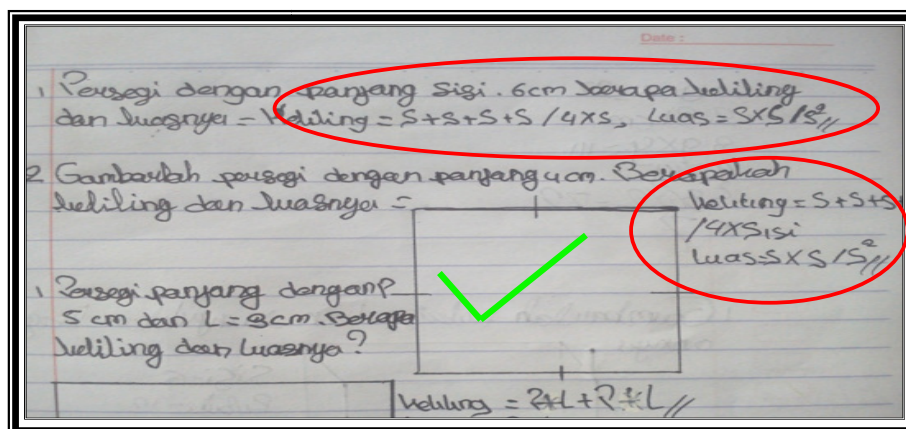 Date :
1 Persegi dengan panjang sisi. 6cm berapa keliling
dan luasnya = Keliling = S+S+S+S /4xs, Luas = SxS /S²//
2 Gambarlah persegi dengan panjang 4 cm. Berapakah
keliling dan luasnya =
Keliling = S+S+S+
/4xSisi
Luas=SxS /S²//
1, Persegi panjang dengan P
5 cm dan L = 3cm. Berapa
keliling dan luasnya?
Keliling = P+L+P+L //